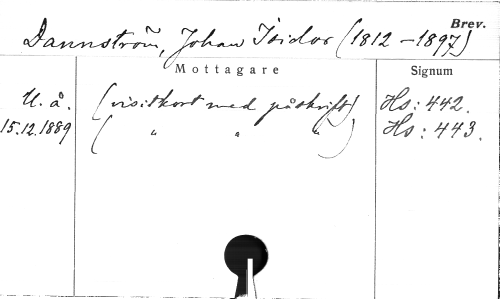 Brev.
Dannström, Johan Isidor (1812-1897)
Mottagare Signum
U. å. (visitkort med påskrift) Hs: 442.
15.12.1889 ( " " " ) Hs: 443.